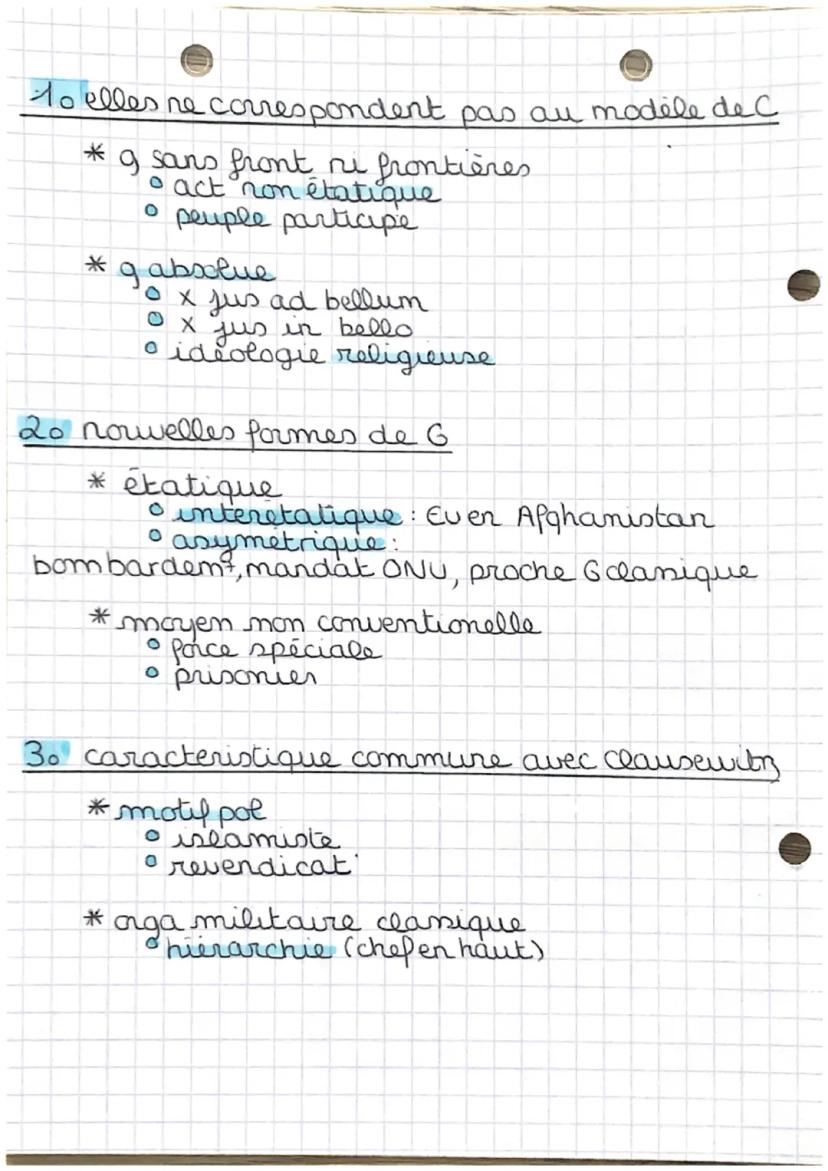 1o elles ne correspondent pas au modèle de C
* g sans front ni frontières
° act non étatique
° peuple participe
* g absolue
° x jus ad bellum
° x jus in bello
° idéologie religieuse
2o nouvelles formes de G
* étatique
° interétatique : EU en Afghanistan
° asymétrique :
bombardemt, mandat ONU, proche G classique
* moyen non conventionelle
° force spéciale
° prisonier
3o caracteristique commune avec Clausewitz
* motif pol
° islamiste
° revendicat°
* orga militaire classique
° hiérarchie (chef en haut)